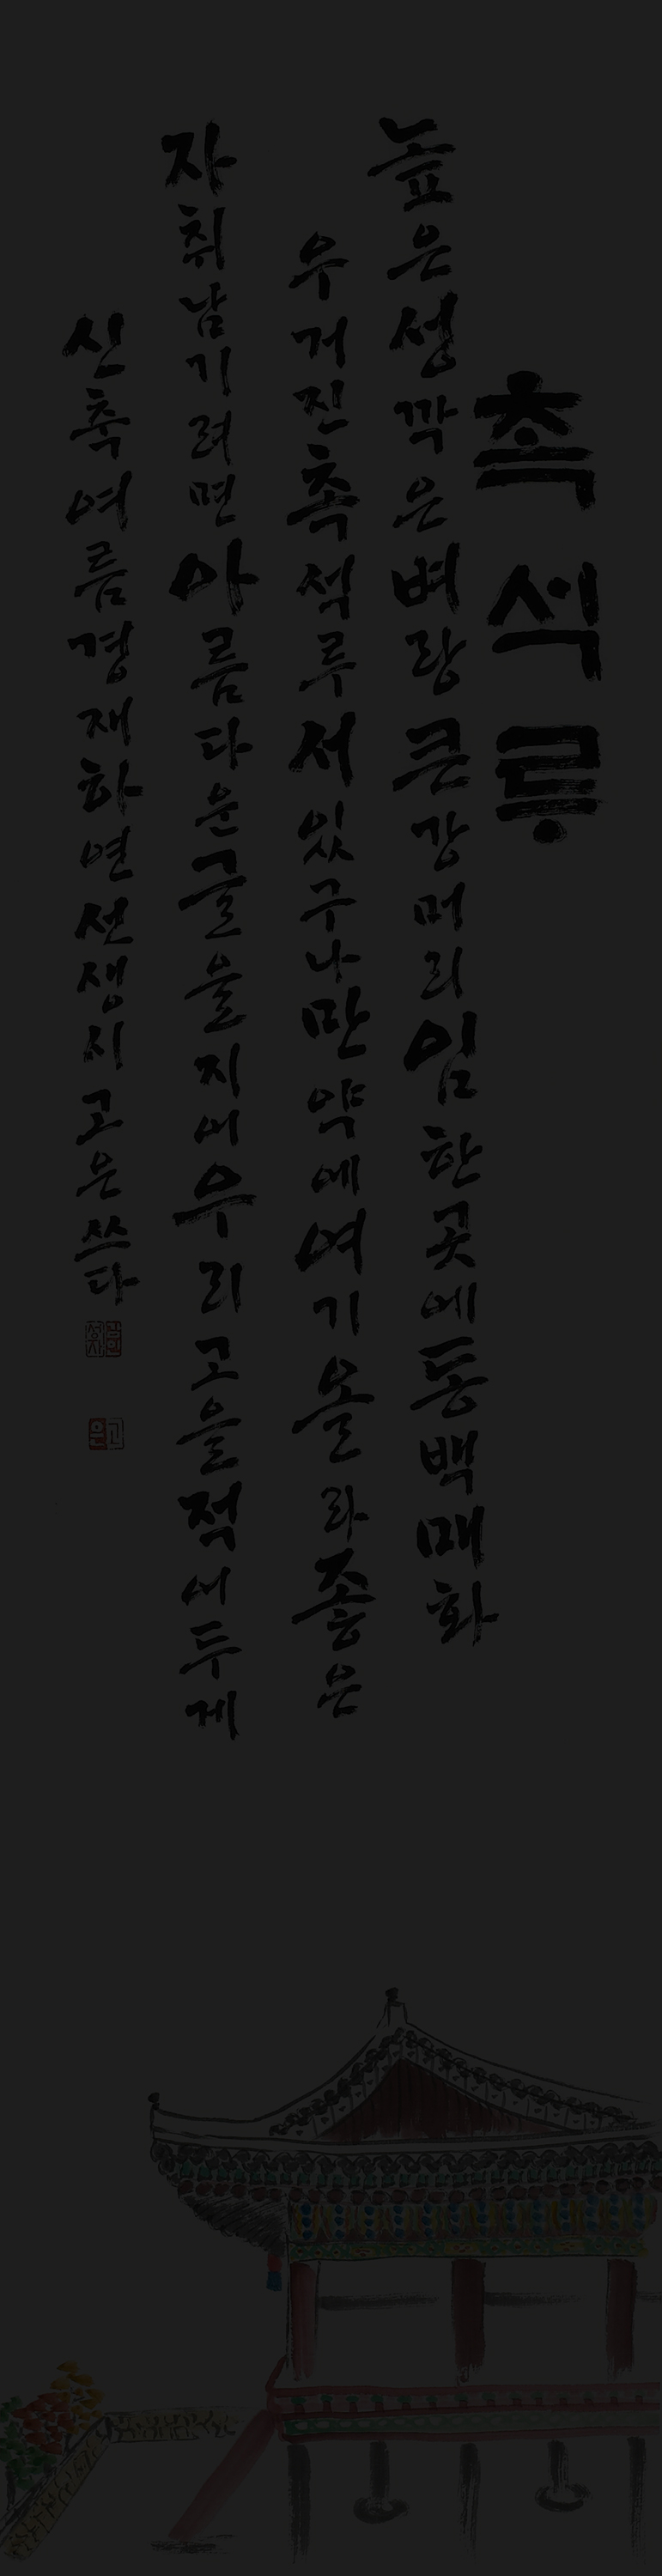 촉석루
높은성깍은벼랑큰강머리임한곳에동백매화
우거진촉석루서있구나만약에여기올라좋은
자취남기려면아름다운글을지어우리고을적어두게
신축여름경재하연선생시고은쓰다